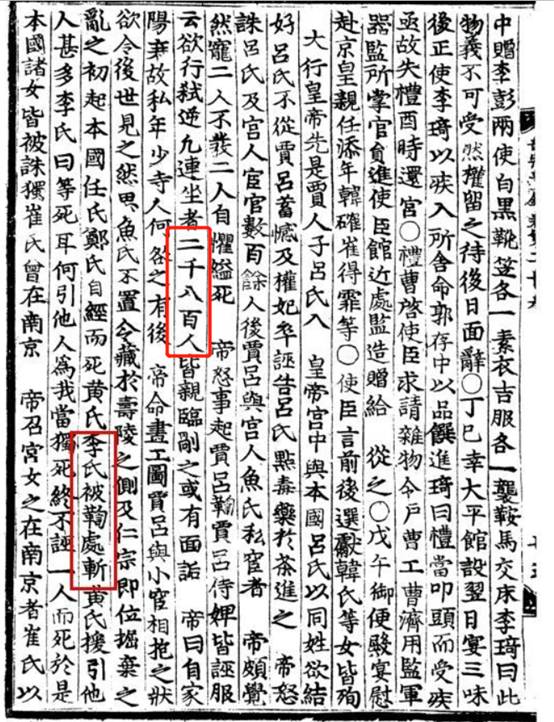 中贈李彭兩使白黑靴笠各一素衣吉服各一襲鞍馬交床李琦曰此
物義不可受然權留之待後日面辭〇丁巳幸大平館設翌日宴三味
後正使李琦以疾入所舍命郭存中以品饌進琦曰禮當叩頭而受疾
亟故失禮酉時還宮〇禮曹啓使臣求請雜物令戶曹工曹濟用監軍
器監所掌官員進使臣館近處監造贈給 從之〇戊午御便殿宴慰
赴京皇親任添年韓確崔得霏等〇使臣言前後選獻韓氏等女皆殉
大行皇帝先是賈人子呂氏入 皇帝宮中與本國呂氏以同姓欲結
好呂氏不從賈呂蓄憾及權妃卒誣告呂氏點毒藥於茶進之 帝怒
誅呂氏及宮人宦官數百餘人後賈呂與宮人魚氏私宦者 帝頗覺
然寵二人不發二人自懼縊死 帝怒事起賈呂鞫賈呂侍婢皆誣服
云欲行弑逆凡連坐者二千八百人皆親臨剮之或有面詬 帝曰自家
陽衰故私年少寺人何咎之有後 帝命畫工圖賈呂與小宦相抱之狀
欲令後世見之然思魚氏不置令藏於壽陵之側及仁宗即位掘棄之
亂之初起本國任氏鄭氏自經而死黃氏李氏被鞫處斬黃氏援引他
人甚多李氏曰等死耳何引他人爲我當獨死終不誣一人而死於是
本國諸女皆被誅獨崔氏曾在南京 帝召宮女之在南京者崔氏以